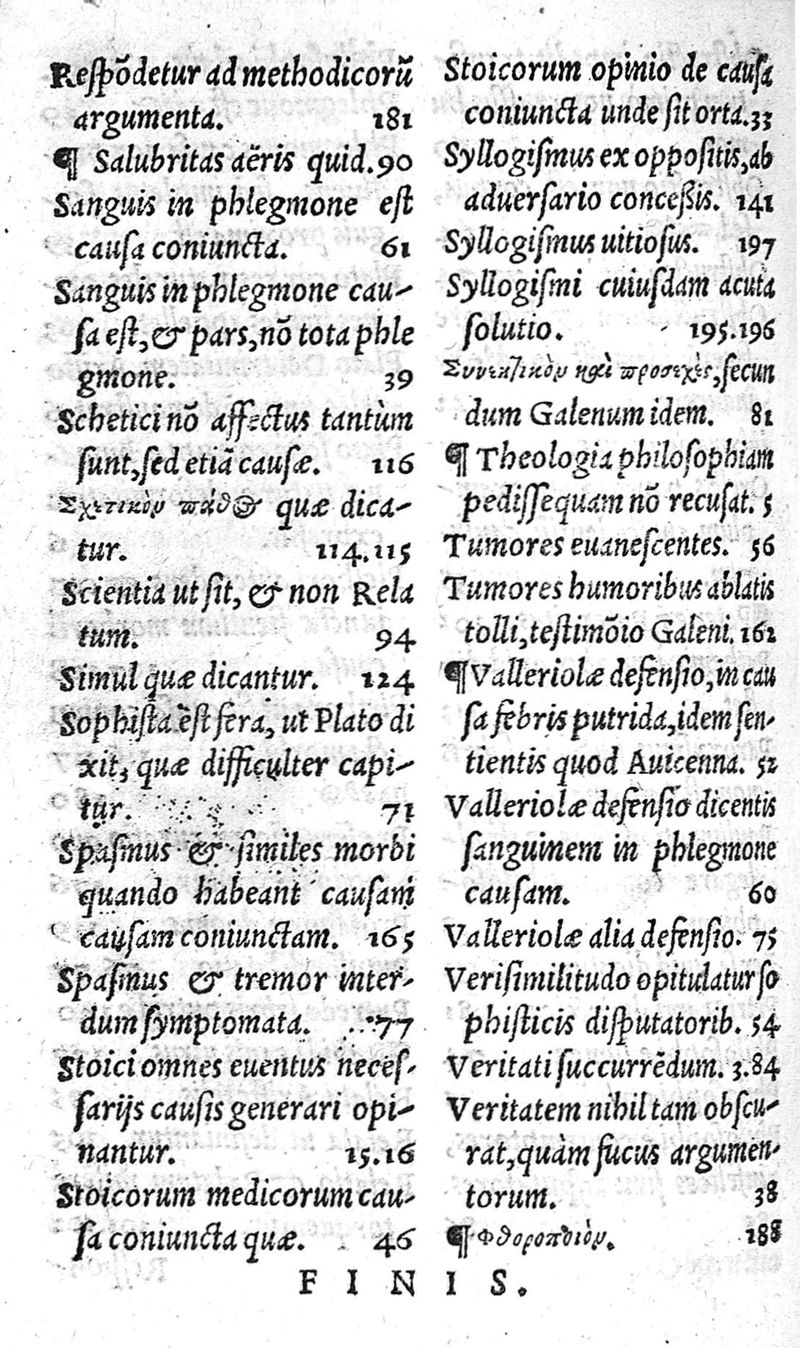 Reſpõdetur ad methodicorũ
argumenta. 181
¶ Salubritas aëris quid. 90
Sanguis in phlegmone eſt
cauſa coniuncta. 61
Sanguis in phlegmone cau-
ſa eſt, & pars, nõ tota phle
gmone. 39
Schetici nõ affectus tantùm
ſunt, ſed etiã cauſæ. 116
Σχετικὸν πάθος quæ dica-
tur. 114.115
Scientia ut ſit, & non Rela
tum. 94
Simul quæ dicantur. 124
Sophiſta eſt fera, ut Plato di
xit, quæ difficulter capi-
tur. 71
Spaſmus & ſimiles morbi
quando habeant cauſam
cauſam coniunctam. 165
Spaſmus & tremor inter-
dum ſymptomata. 77
Stoici omnes euentus neceſ-
ſarijs cauſis generari opi-
nantur. 15.16
Stoicorum medicorum cau-
ſa coniuncta quæ. 46
Stoicorum opinio de cauſa
coniuncta unde ſit orta. 33
Syllogiſmus ex oppoſitis, ab
aduerſario conceßis. 141
Syllogiſmus uitioſus. 197
Syllogiſmi cuiuſdam acuta
ſolutio. 195.196
Συνεκτικὸν καὶ προσεχὲς, ſecun
dum Galenum idem. 81
¶ Theologia philoſophiam
pediſſequam nõ recuſat. 5
Tumores euaneſcentes. 56
Tumores humoribus ablatis
tolli, teſtimõio Galeni. 162
¶ Valleriolæ defenſio, in cau
ſa febris putrida, idem ſen-
tientis quod Auicenna. 52
Valleriolæ defenſio dicentis
ſanguinem in phlegmone
cauſam. 60
Valleriolæ alia defenſio. 75
Veriſimilitudo opitulatur ſo
phiſticis diſputatorib. 54
Veritati ſuccurrẽdum. 3.84
Veritatem nihil tam obſcu-
rat, quàm fucus argumen-
torum. 38
¶ Φθοροποιὸν. 188
FINIS.